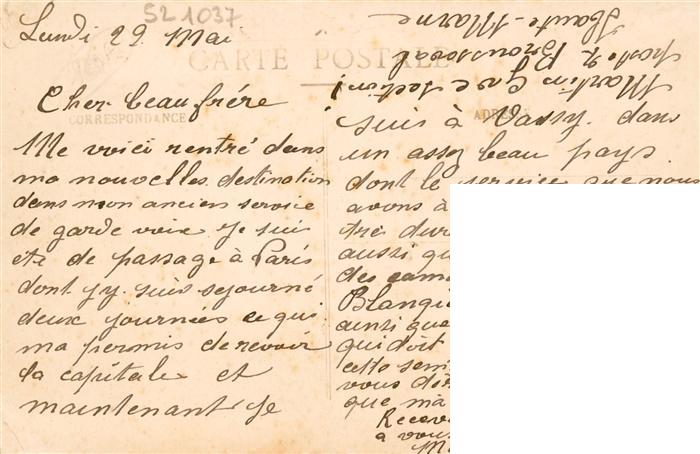 521037
Lundi 29 Mai
CARTE POSTALE
Cher beau frére
CORRESPONDANCE
Me voici rentré dans
ma nouvelles destination
dans mon ancien service
de garde voix je suis
été de passage à Paris
dont j'y suis sejourné
deux journées ce qui
ma permis de revoir
la capitale et
maintenant je
suis à Vassy dans
un assez beau pays
dont le service que nous
avons à
tré dur
aussi qu
des cama
Blangi
ainsi que
qui doit
cette sem
vous dir
que ma
Recev
a vous
Ma
Martin Garde Section
poste
Haute-Marne